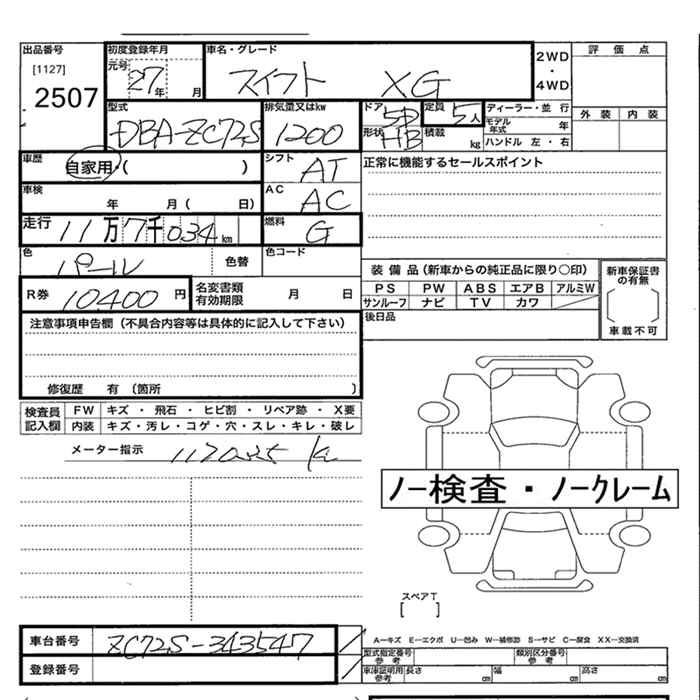 出品番号 初度登録年月 車名・グレード 2WD ・ 4WD 評価点
[1127] 元号 27年 月 スイフト XG
2507 型式 排気量又はkw ドア 5D 定員 5人 ディーラー・並行 外装 内装
DBA-ZC72S 1200 形状 HB 積載 kg モデル年式 年
ハンドル 左・右
車歴 自家用・( ) シフト AT 正常に機能するセールスポイント
車検 年 月( 日) AC AC
走行 11万7千034km 燃料 G
色 パール 色替 色コード
装備品(新車からの純正品に限り〇印) 新車保証書の有無
R券 10400円 名変書類有効期限 月 日 PS PW ABS エアB アルミW
サンルーフ ナビ TV カワ
車載不可
注意事項申告欄(不具合内容等は具体的に記入して下さい) 後日品
修復歴 有 (箇所 )
検査員記入欄 FW キズ・飛石・ヒビ割・リペア跡・X要
内装 キズ・汚レ・コゲ・穴・スレ・キレ・破レ
メーター指示
ノー検査・ノークレーム
スペアT
[ ]
車台番号 ZC72S-343547 A―キズ E―エクボ U―凹み W―補修跡 S―サビ C―腐食 XX―交換済
型式指定番号 参考 類別区分番号 参考
登録番号 車庫証明用 参考 長さ cm 幅 cm 高さ cm